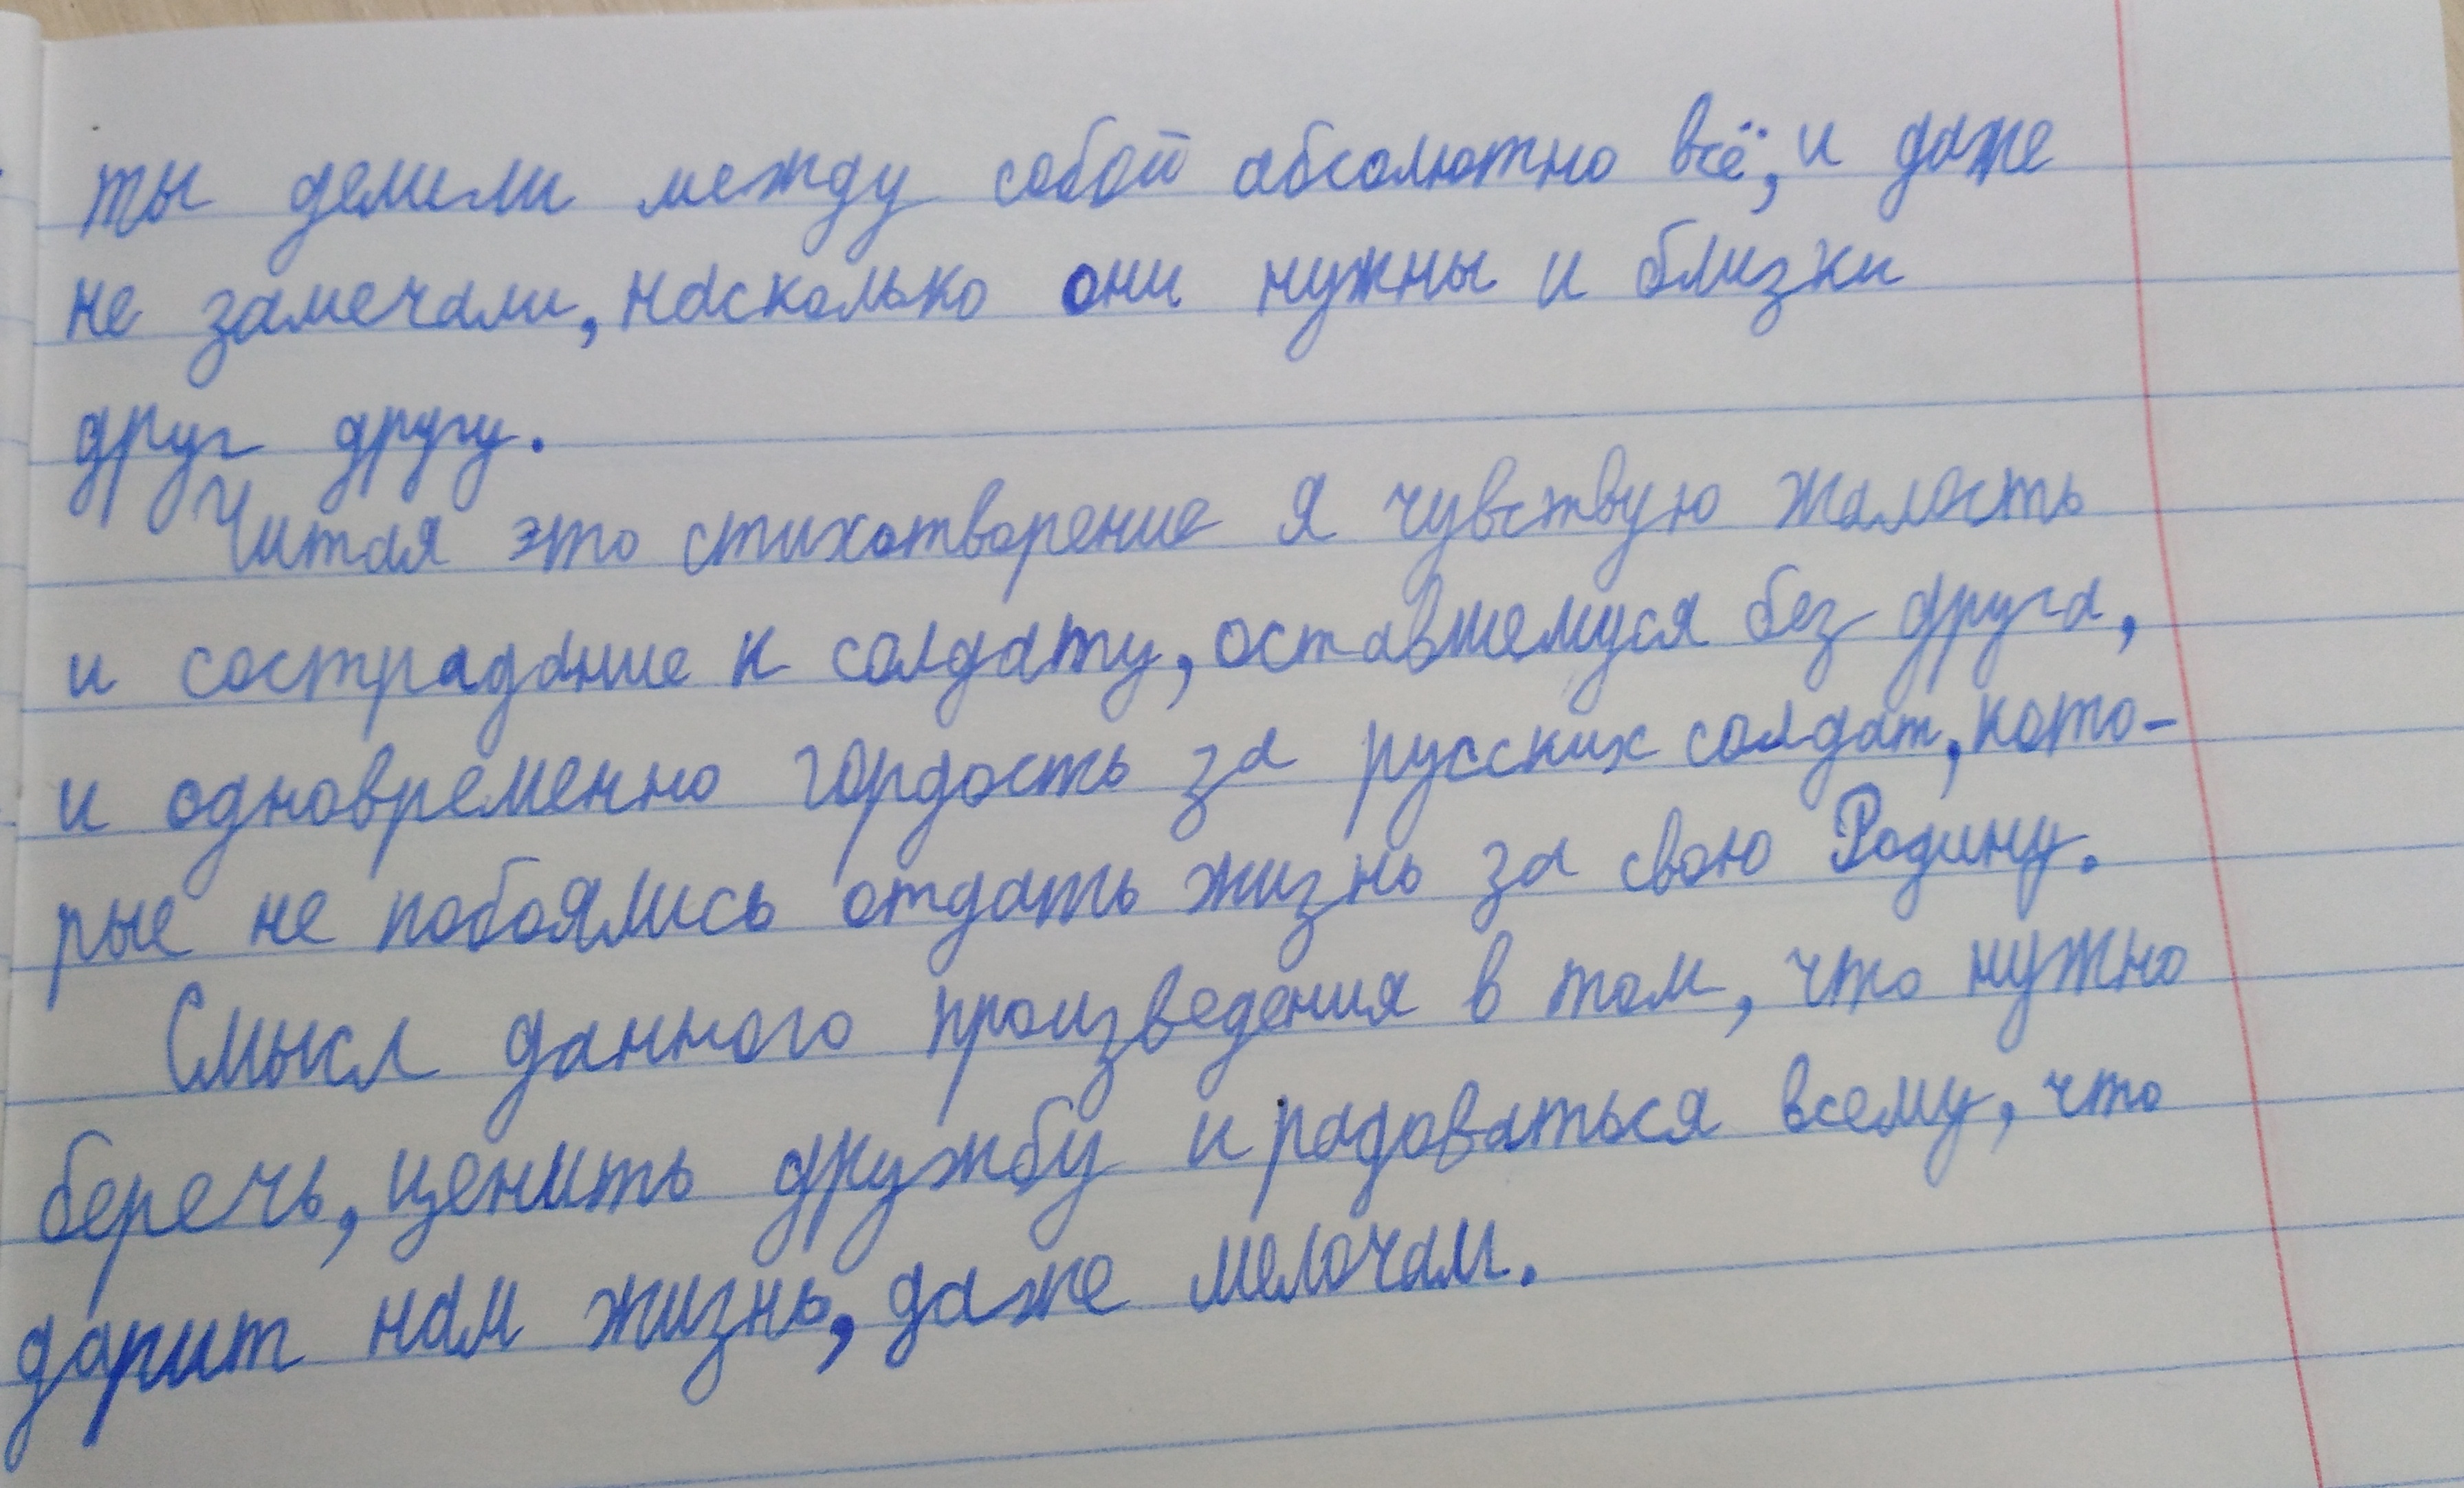 ты делили между собой абсолютно всё, и даже
не замечали, насколько они нужны и близки
друг другу.
Читая это стихотворение я чувствую жалость
и сострадание к солдату, оставшемуся без друга,
и одновременно гордость за русских солдат, кото-
рые не побоялись отдать жизнь за свою Родину.
Смысл данного произведения в том, что нужно
беречь, ценить дружбу и радоваться всему, что
дарит нам жизнь, даже мелочам.